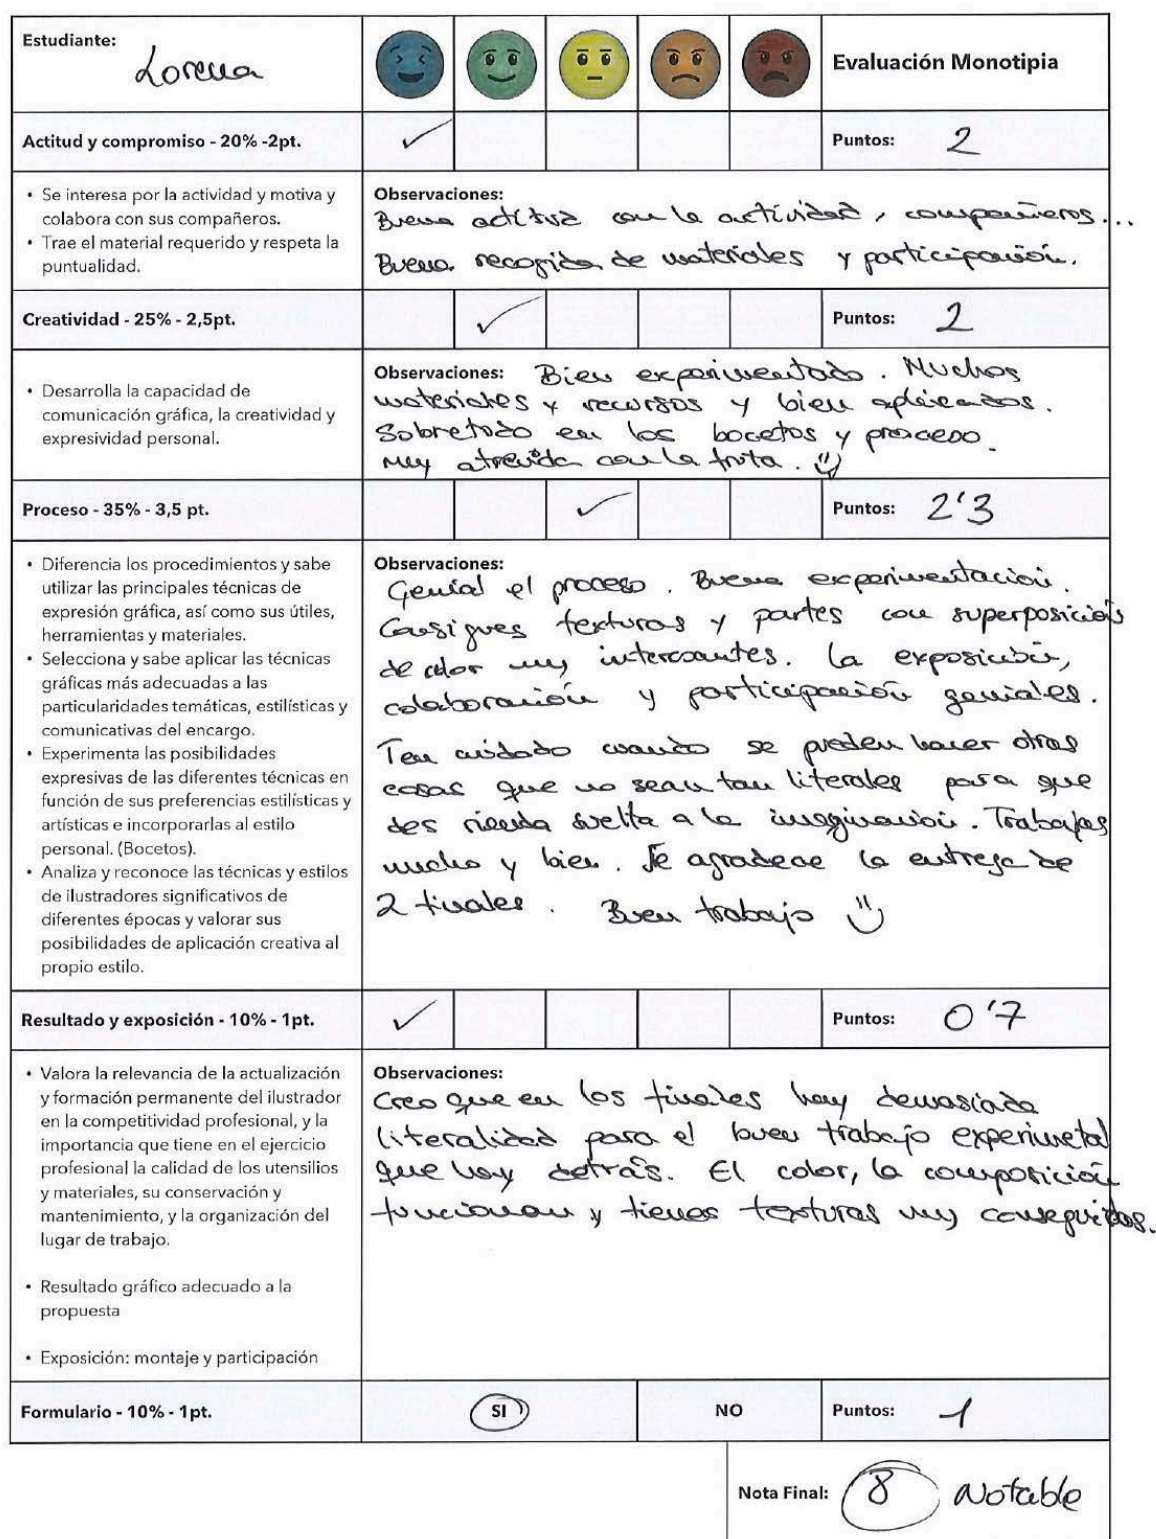 Estudiante:
Lorena
Evaluación Monotipia
Actitud y compromiso - 20% -2pt.
Puntos: 2
• Se interesa por la actividad y motiva y
colabora con sus compañeros.
• Trae el material requerido y respeta la
puntualidad.
Observaciones:
Buena actitud con la actividad, compañeros...
Buena recogida de materiales y participación.
Creatividad - 25% - 2,5pt.
Puntos: 2
• Desarrolla la capacidad de
comunicación gráfica, la creatividad y
expresividad personal.
Observaciones: Bien experimentado. Muchos
materiales y recursos y bien aplicados.
Sobretodo en los bocetos y proceso.
Muy atrevida con la fruta.
Proceso - 35% - 3,5 pt.
Puntos: 2'3
• Diferencia los procedimientos y sabe
utilizar las principales técnicas de
expresión gráfica, así como sus útiles,
herramientas y materiales.
• Selecciona y sabe aplicar las técnicas
gráficas más adecuadas a las
particularidades temáticas, estilísticas y
comunicativas del encargo.
• Experimenta las posibilidades
expresivas de las diferentes técnicas en
función de sus preferencias estilísticas y
artísticas e incorporarlas al estilo
personal. (Bocetos).
• Analiza y reconoce las técnicas y estilos
de ilustradores significativos de
diferentes épocas y valorar sus
posibilidades de aplicación creativa al
propio estilo.
Observaciones:
Genial el proceso. Buena experimentación.
Consigues texturas y partes con superposición
de color muy interesantes. La exposición,
colaboración y participación geniales.
Ten cuidado cuando se pueden hacer otras
cosas que no sean tan literales para que
des rienda suelta a la imaginación. Trabajas
mucho y bien. Se agradece la entrega de
2 finales. Buen trabajo
Resultado y exposición - 10% - 1pt.
Puntos: 0'7
• Valora la relevancia de la actualización
y formación permanente del ilustrador
en la competitividad profesional, y la
importancia que tiene en el ejercicio
profesional la calidad de los utensilios
y materiales, su conservación y
mantenimiento, y la organización del
lugar de trabajo.
• Resultado gráfico adecuado a la
propuesta
• Exposición: montaje y participación
Observaciones:
Creo que en los finales hay demasiada
literalidad para el buen trabajo experimetal
que hay detrás. El color, la composición
funcionan y tienes texturas muy conseguidas.
Formulario - 10% - 1pt.
SI
NO
Puntos: 1
Nota Final: 8 Notable